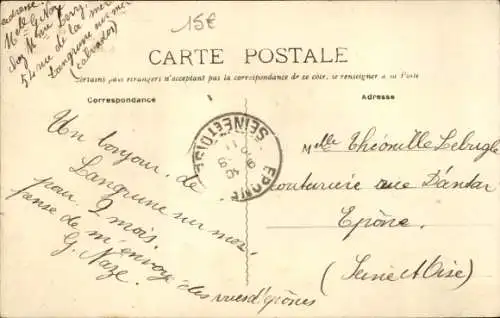 adresse
Melle G. Naze
54 rue de la mer
Langrune sur mer
(Calvados)
15€
CARTE POSTALE
Certains pays étrangers n'acceptent pas la correspondance de ce côté, se renseigner à la Poste
Correspondance
Adresse
Un bonjour de
Langrune sur mer
pour 2 mois.
pense de m'envoyé des vues d'épônes
G. Naze.
EPONE
SEINE ET OISE
Melle Théonille Lebugle
couturière rue
Epône.
(Seine et Oise)